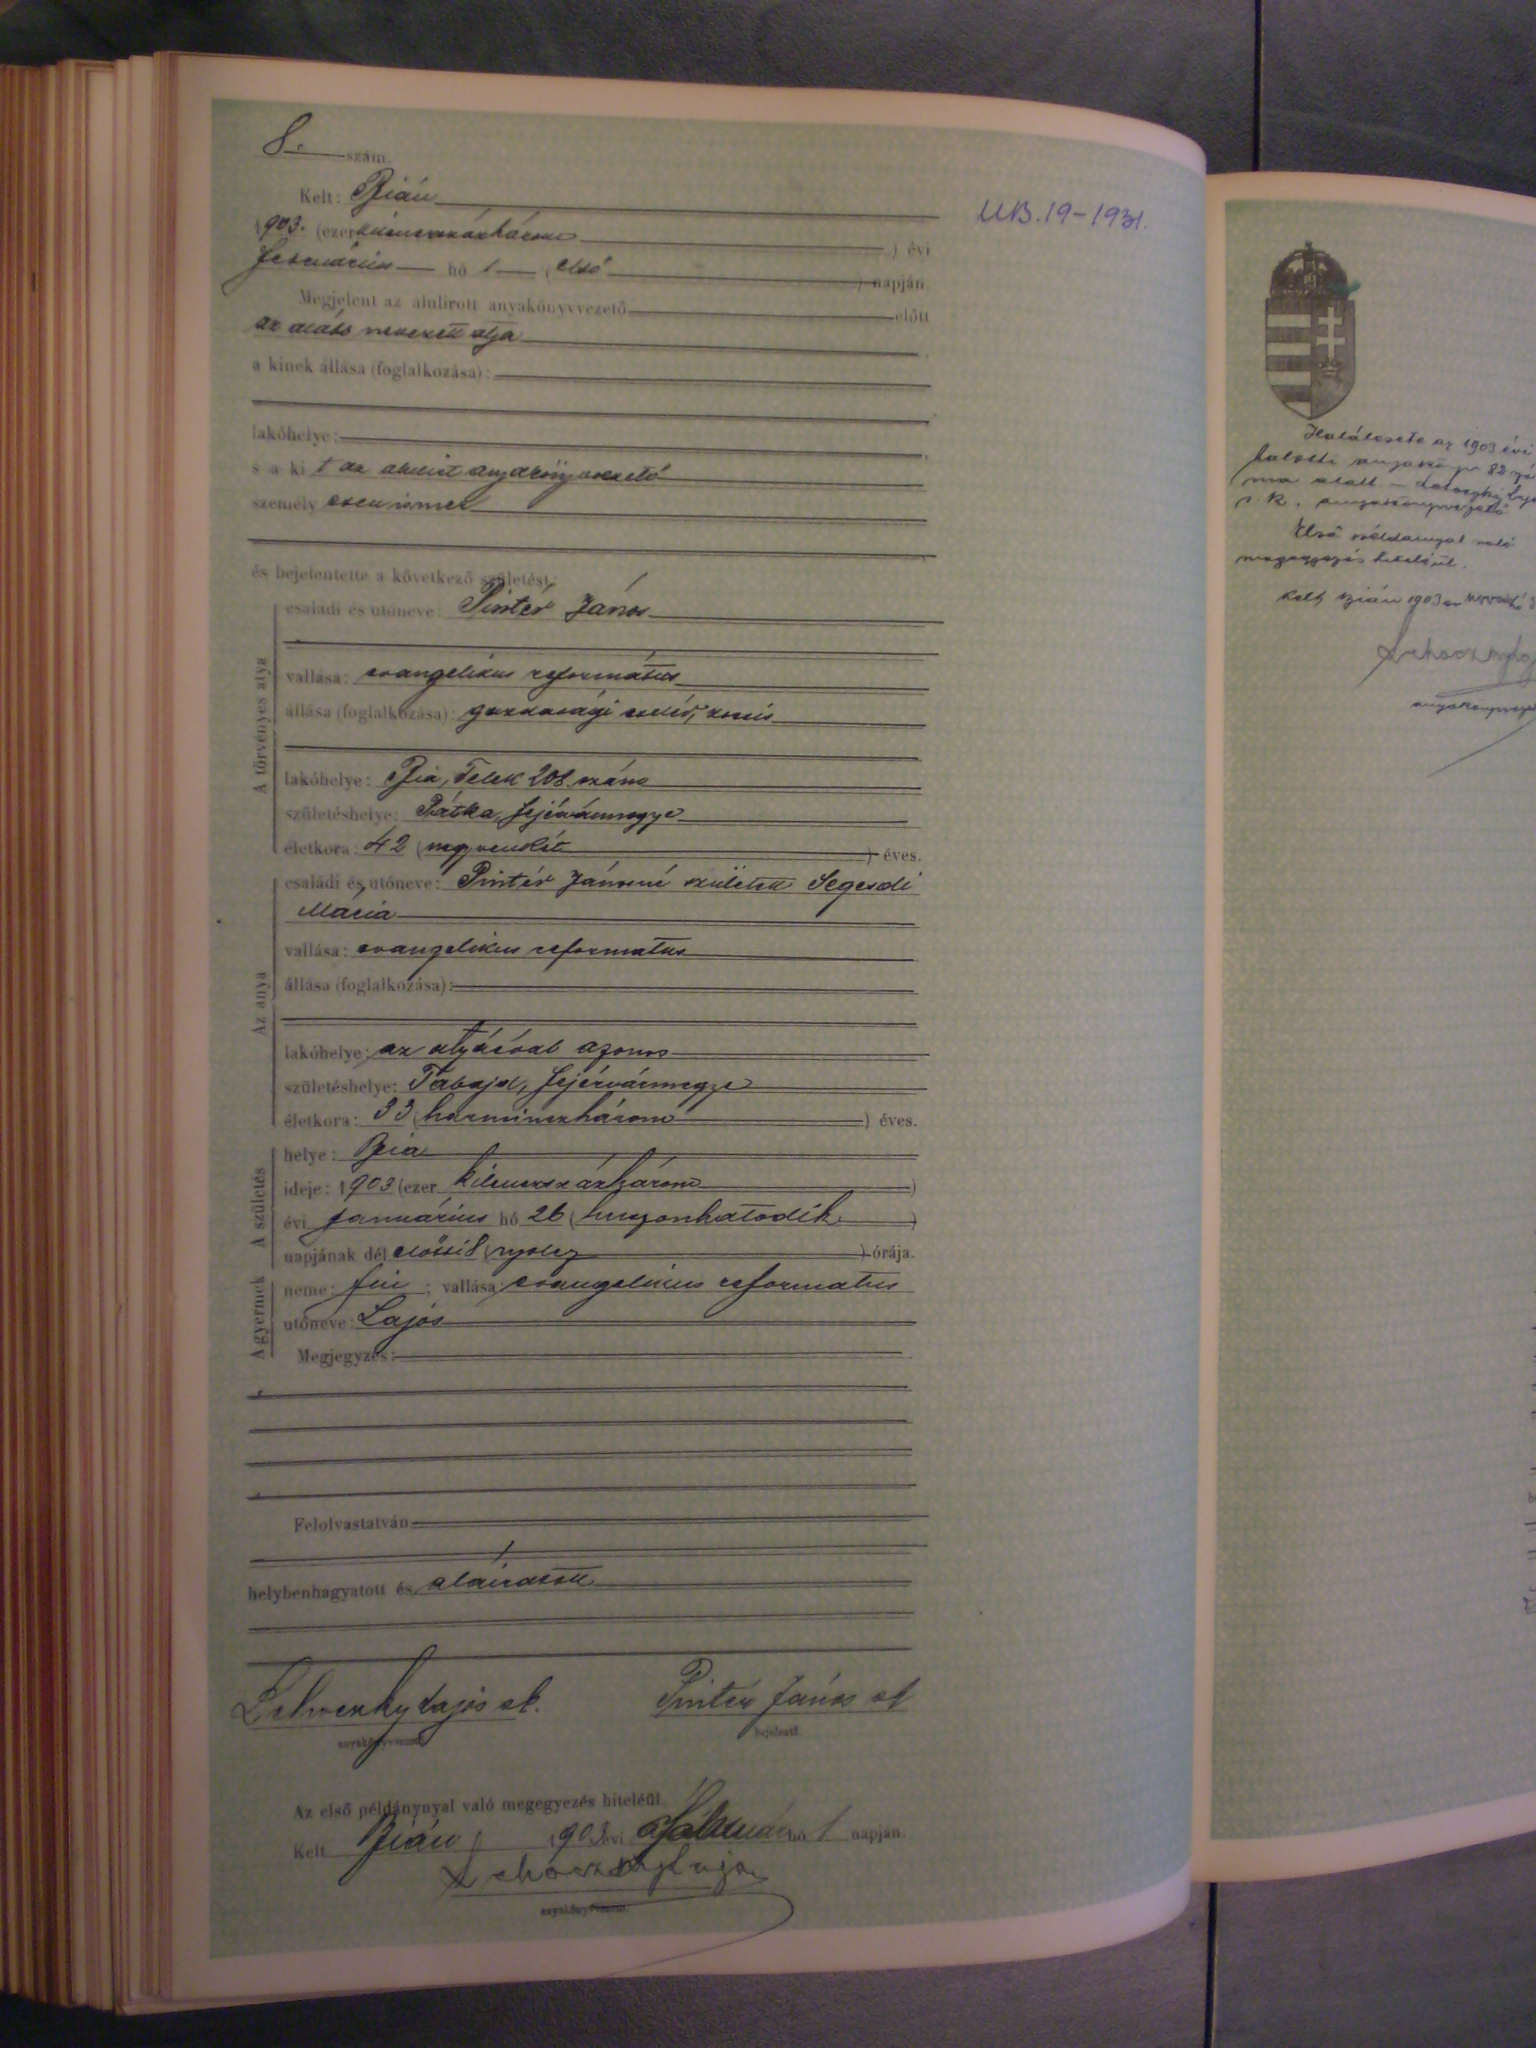 8. szám.
Kelt: Bián
1903. (ezer kilencszázhárom) évi
február hó 1 (első) napján
Megjelent az alulirott anyakönyvvezető előtt
az alább nevezett atya
a kinek állása (foglalkozása):
lakóhelye:
s a kit az alulírt anyakönyvvezető
személyesen ismer
és bejelentette a következő születést:
A törvényes atya
családi és utóneve: Pintér János
vallása: evangelikus református
állása (foglalkozása): gazdasági cseléd, kocsis
lakóhelye: Bia, Telek 208. szám
születéshelye: Pátka, Fejérvármegye
életkora: 42 (negyvenkét) éves.
Az anya
családi és utóneve: Pintér Jánosné született Segesdi
Mária
vallása: evangelikus reformatus
állása (foglalkozása):
lakóhelye: az atyáéval azonos
születéshelye: Tabajd, Fejérvármegye
életkora: 33 (harminczhárom) éves.
A születés
helye: Bia
ideje: 1903 (ezer kilenczszázhárom)
évi január hó 26 (huszonhatodik)
napjának dél előtti 8 (nyolcz) órája.
A gyermek
neme: fiú; vallása: evangelikus reformatus
utóneve: Lajos
Megjegyzés:
Felolvastatván
helybenhagyatott és aláiratott
Lehoczky Lajos sk. Pintér János sk
anyakönyvvezető. bejelentő.
Az első példánynyal való megegyezés hiteléül.
Kelt Bián, 1903 évi február hó 1 napján.
Lehoczky Lajos
anyakönyvvezető.
UB. 19-1931.
Halálesete az 1903 évi
halotti 82
ma alatt. – Lehoczky
s. k. anyakönyvvezető
Első példánnyal való
megegyezés hiteléül.
Kelt, Bián 1903
Lehoczky